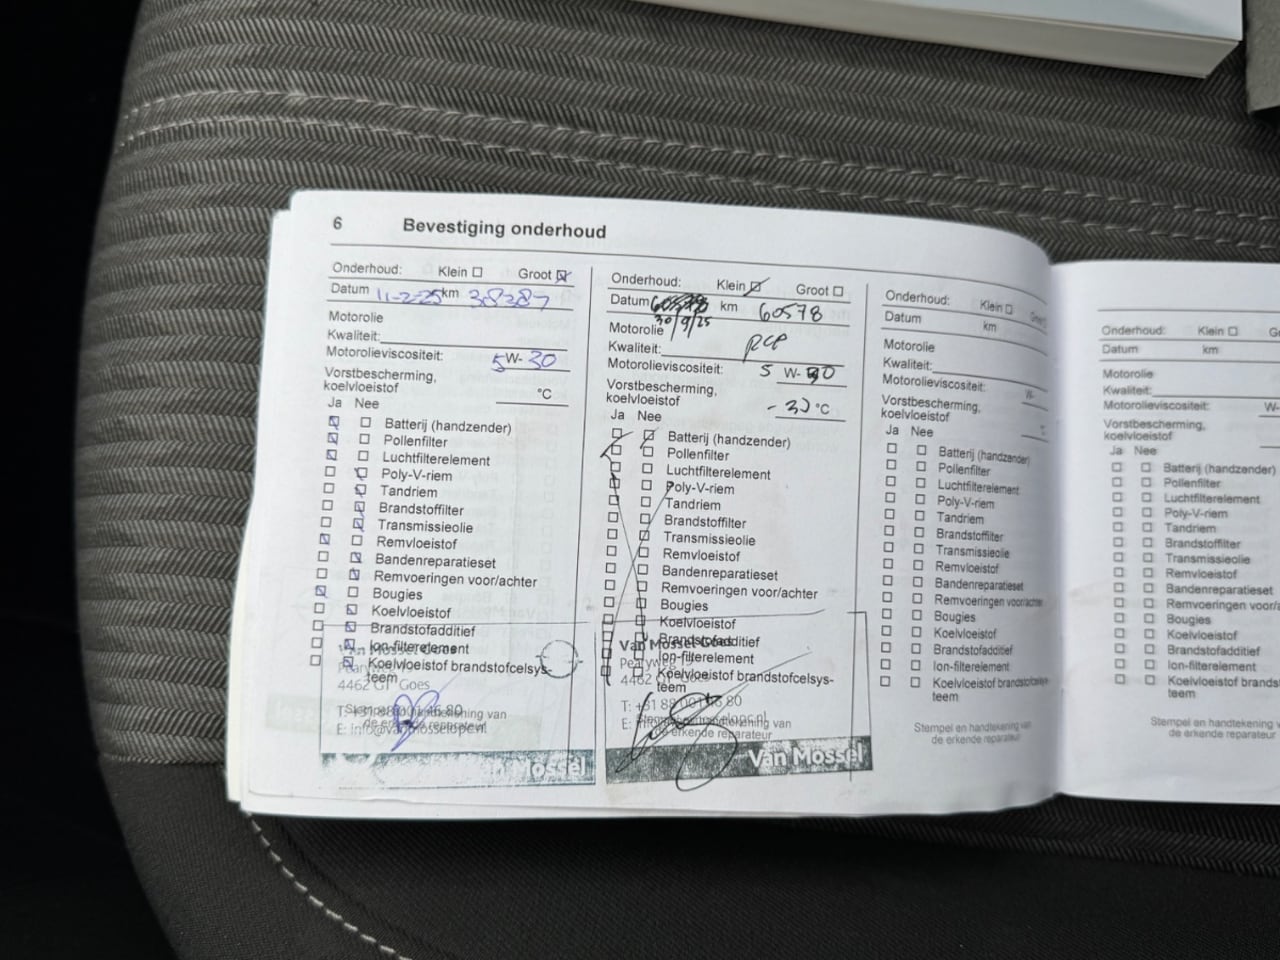 6 Bevestiging onderhoud
Onderhoud: Klein Groot
Datum 11-2-25 km 38287
Motorolie
Kwaliteit:
Motorolieviscositeit: 5W-30
Vorstbescherming,
koelvloeistof °C
Ja Nee
Batterij (handzender)
Pollenfilter
Luchtfilterelement
Poly-V-riem
Tandriem
Brandstoffilter
Transmissieolie
Remvloeistof
Bandenreparatieset
Remvoeringen voor/achter
Bougies
Koelvloeistof
Brandstofadditief
Ion-filterelement
Koelvloeistof brandstofcelsys-
teem
4462 GT Goes
Stempel en handtekening van
de erkende reparateur
Van Mossel
Onderhoud: Klein Groot
Datum km 60578
30/9/25
Motorolie
Kwaliteit:
Motorolieviscositeit: 5 W-30
Vorstbescherming,
koelvloeistof -30 °C
Ja Nee
Batterij (handzender)
Pollenfilter
Luchtfilterelement
Poly-V-riem
Tandriem
Brandstoffilter
Transmissieolie
Remvloeistof
Bandenreparatieset
Remvoeringen voor/achter
Bougies
Koelvloeistof
Brandstofadditief
Van Mossel Goes
Ion-filterelement
Koelvloeistof brandstofcelsys-
teem
4462 GT Goes
Stempel en handtekening van
de erkende reparateur
Van Mossel
Onderhoud: Klein
Datum km
Motorolie
Kwaliteit:
Motorolieviscositeit: W-
Vorstbescherming,
koelvloeistof
Ja Nee
Batterij (handzender)
Pollenfilter
Luchtfilterelement
Poly-V-riem
Tandriem
Brandstoffilter
Transmissieolie
Remvloeistof
Bandenreparatieset
Remvoeringen voor/achter
Bougies
Koelvloeistof
Brandstofadditief
Ion-filterelement
Koelvloeistof brandstofcelsys-
teem
Stempel en handtekening van
de erkende reparateur
Onderhoud: Klein
Datum km
Motorolie
Kwaliteit:
Motorolieviscositeit: W-
Vorstbescherming,
koelvloeistof
Ja Nee
Batterij (handzender)
Pollenfilter
Luchtfilterelement
Poly-V-riem
Tandriem
Brandstoffilter
Transmissieolie
Remvloeistof
Bandenreparatieset
Remvoeringen voor/achter
Bougies
Koelvloeistof
Brandstofadditief
Ion-filterelement
Koelvloeistof brands
teem
Stempel en handtekening
de erkende reparateur